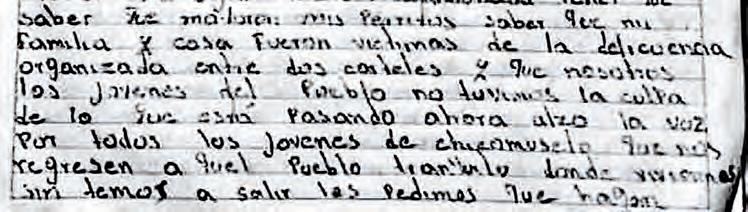 saber que mataron mis Perritos saber que mi
familia y casa Fueron victimas de la delicuencia
organizada entre dos carteles y que nosotros
los jovenes del Pueblo no tuvimos la culpa
de lo que está Pasando ahora alzo la voz
Por todos los jovenes de chicomuselo que nos
regresen a quel Pueblo tranquilo donde viviamos
sin temor a salir les Pedimos que hagan